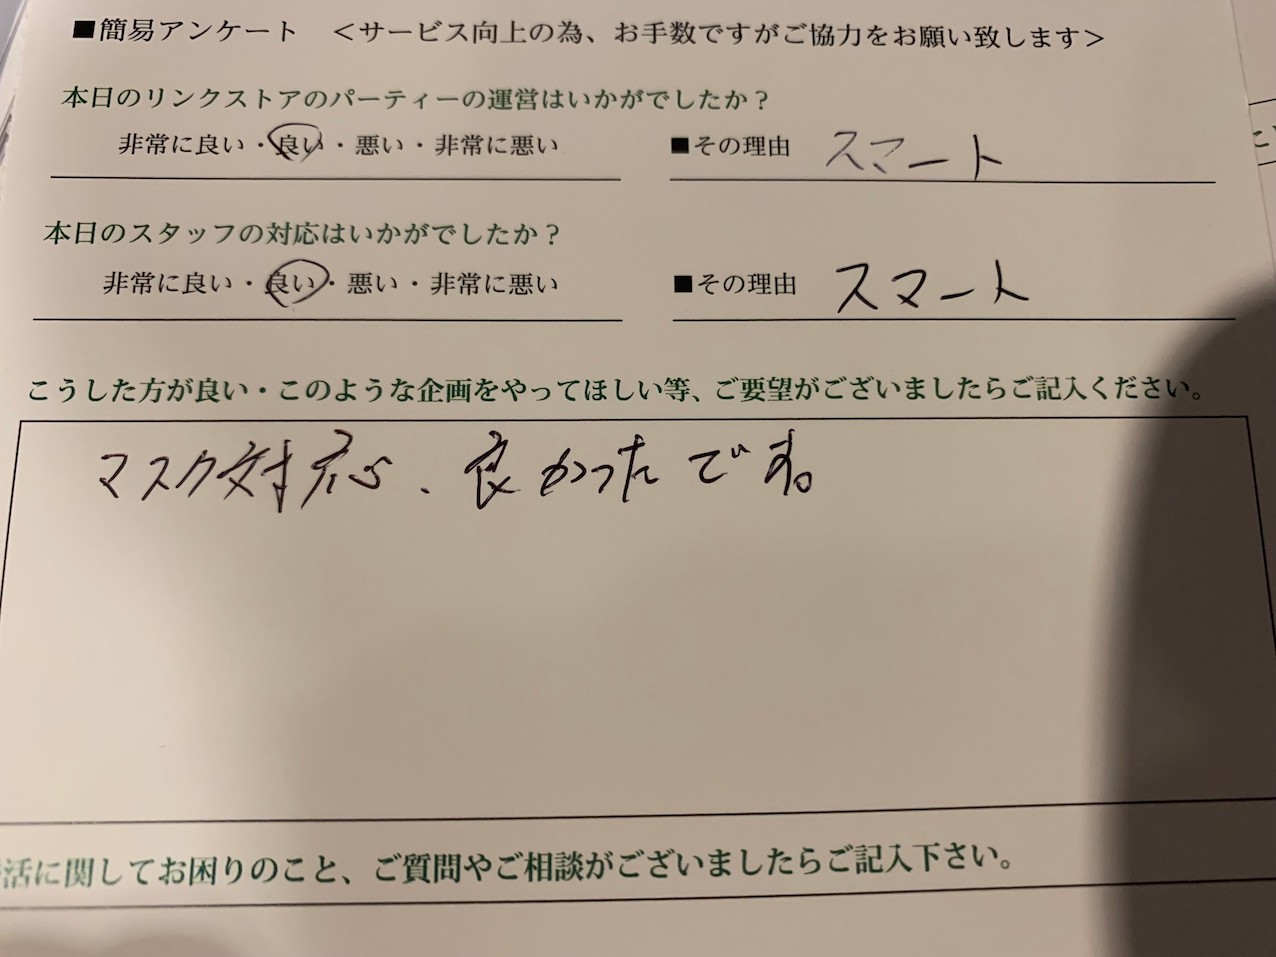 ■簡易アンケート ＜サービス向上の為、お手数ですがご協力をお願い致します＞
本日のリンクストアのパーティーの運営はいかがでしたか？
非常に良い・良い・悪い・非常に悪い ■その理由 スマート
本日のスタッフの対応はいかがでしたか？
非常に良い・良い・悪い・非常に悪い ■その理由 スマート
こうした方が良い・このような企画をやってほしい等、ご要望がございましたらご記入ください。
マスク対応、良かったです。
活に関してお困りのこと、ご質問やご相談がございましたらご記入下さい。